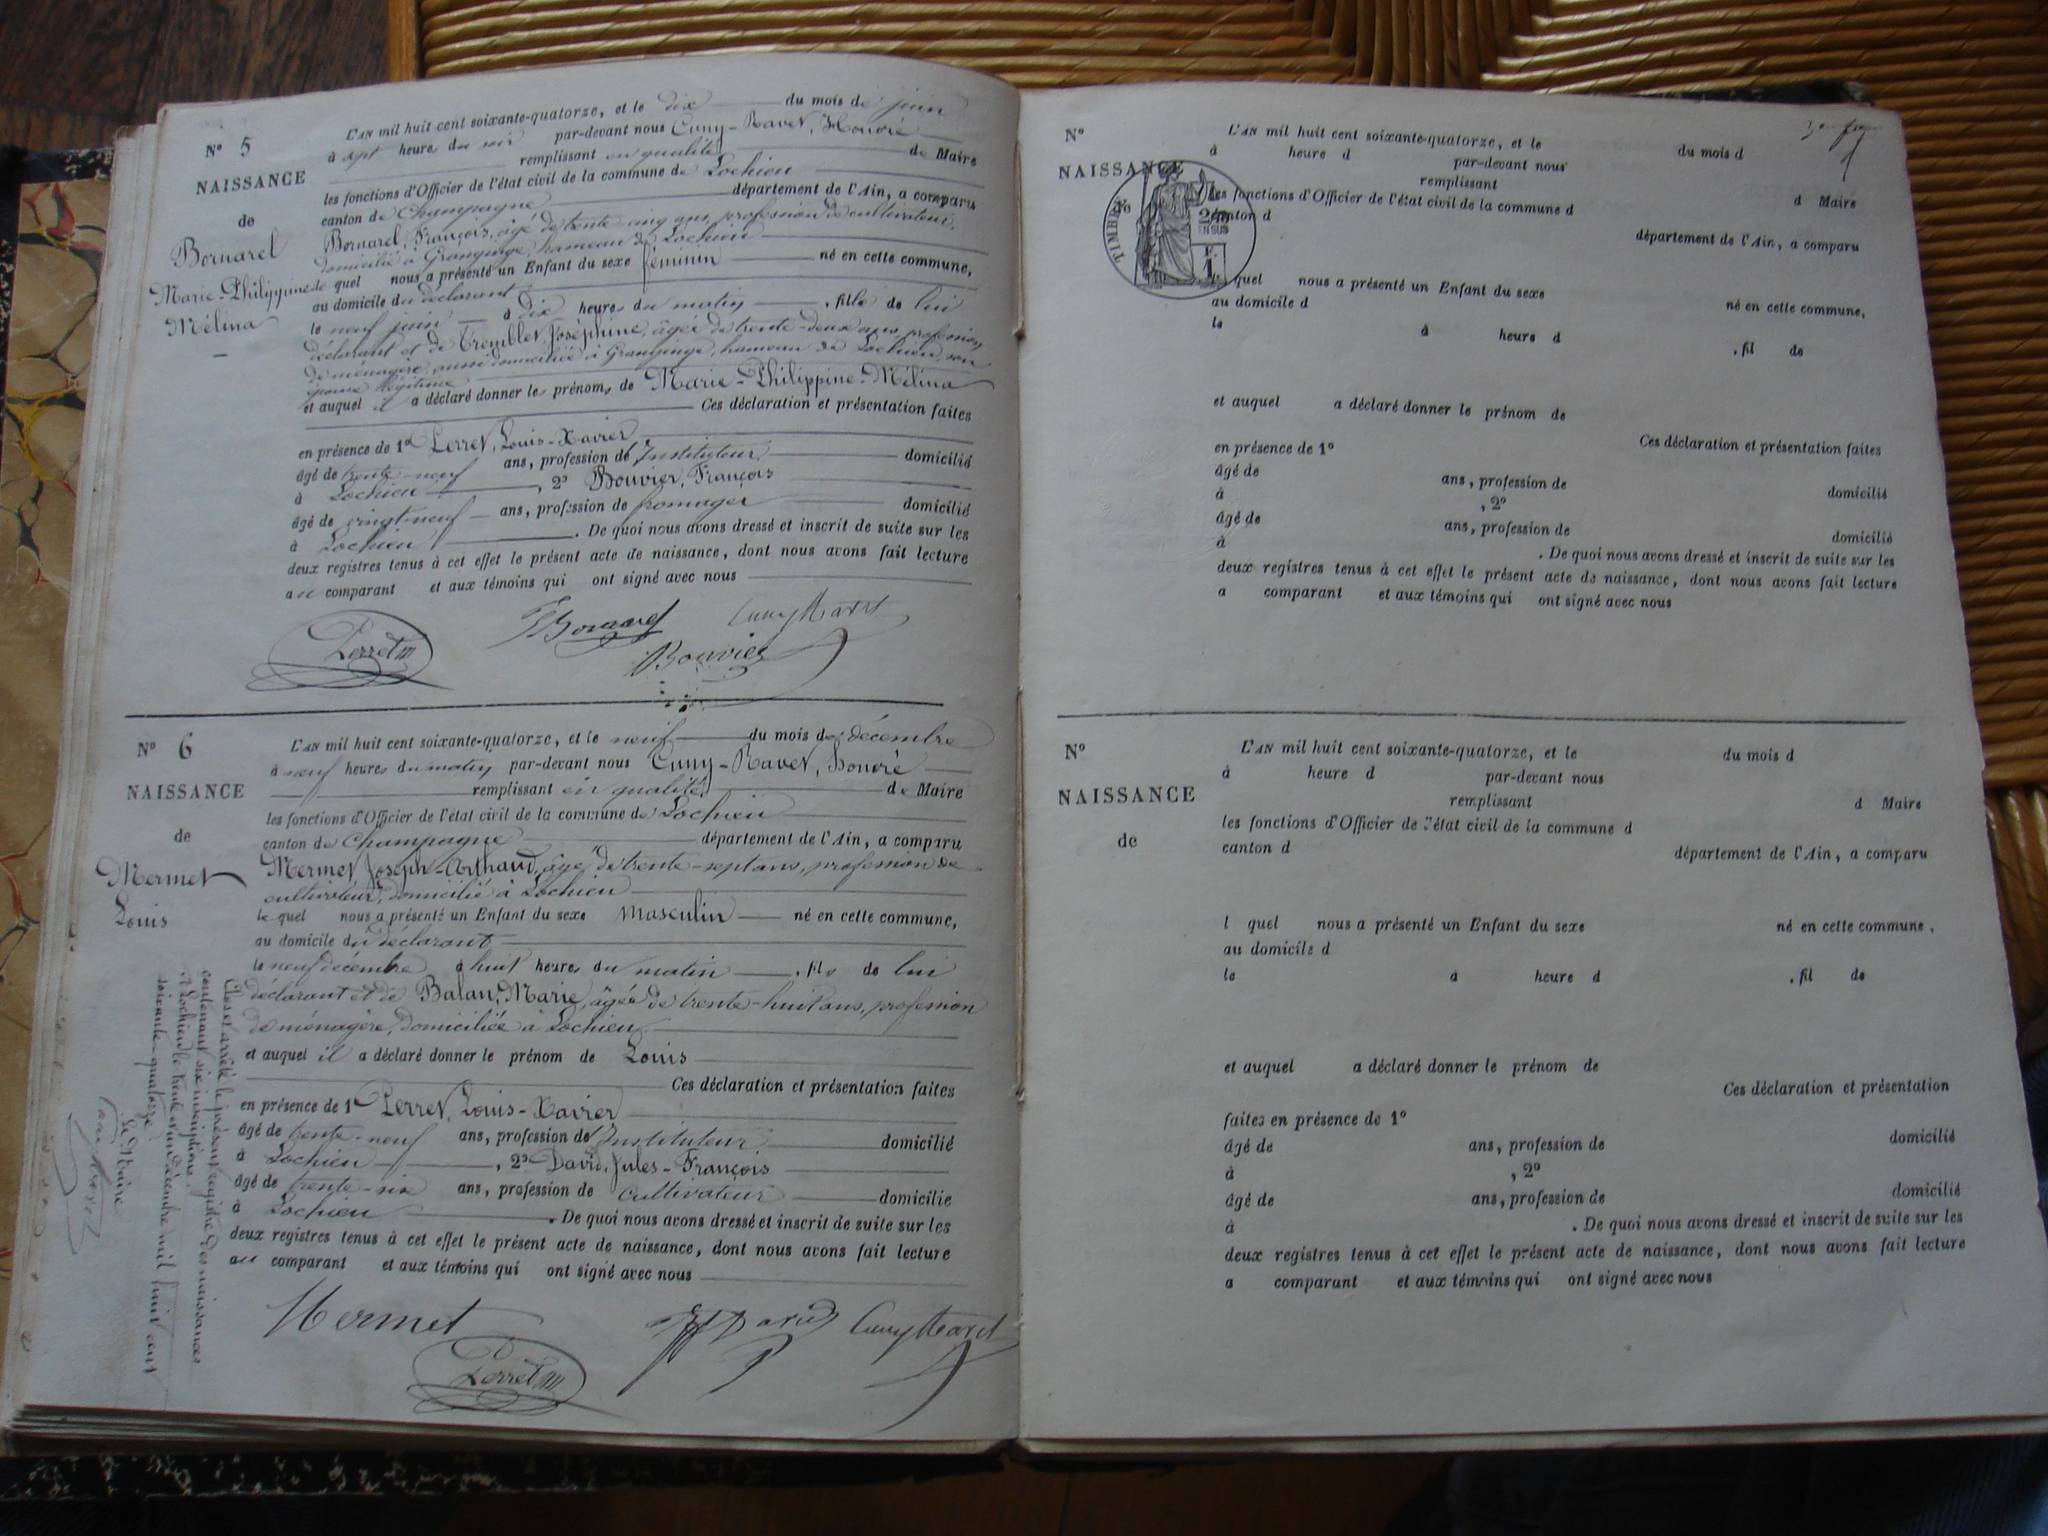 N° 5
NAISSANCE
de
Bornarel
Marie-Philippine
Mélina
L'AN mil huit cent soixante-quatorze, et le dix du mois de juin
à sept heures du soir par-devant nous Cuny-Ravet, Honoré
remplissant en qualité de Maire
les fonctions d'Officier de l'état civil de la commune de Lochieu
canton de Champagne département de l'Ain, a comparu
Bornarel, François, âgé de trente cinq ans, profession de cultivateur,
domicilié à Granginge, hameau de Lochieu
le quel nous a présenté un Enfant du sexe féminin né en cette commune,
au domicile du déclarant
le neuf juin à dix heures du matin, fille de lui
déclarant et de Tremblet, Joséphine, âgée de trente-deux ans, profession
de ménagère, aussi domiciliée à Granginge, hameau de Lochieu, son
épouse légitime
et auquel il a déclaré donner les prénoms de Marie-Philippine-Mélina
Ces déclaration et présentation faites
en présence de 1° Perret, Louis-Xavier
âgé de trente-neuf ans, profession de Instituteur domicilié
à Lochieu, 2° Bouvier, François
âgé de vingt-neuf ans, profession de fromager domicilié
à Lochieu. De quoi nous avons dressé et inscrit de suite sur les
deux registres tenus à cet effet le présent acte de naissance, dont nous avons fait lecture
au comparant et aux témoins qui ont signé avec nous
Perret F Bornarel Cuny Ravet
Bouvier
N° 6
NAISSANCE
de
Mermet
Louis
L'AN mil huit cent soixante-quatorze, et le neuf du mois de décembre
à neuf heures du matin par-devant nous Cuny-Ravet, Honoré
remplissant en qualité de Maire
les fonctions d'Officier de l'état civil de la commune de Lochieu
canton de Champagne département de l'Ain, a comparu
Mermet, Joseph-Arthaud, âgé de trente-sept ans, profession de
cultivateur, domicilié à Lochieu
le quel nous a présenté un Enfant du sexe Masculin né en cette commune,
au domicile du déclarant
le neuf décembre à huit heures du matin, fils de lui
déclarant et de Balan, Marie, âgée de trente-huit ans, profession
de ménagère, domiciliée à Lochieu
et auquel il a déclaré donner le prénom de Louis
Ces déclaration et présentation faites
en présence de 1° Perret, Louis-Xavier
âgé de trente-neuf ans, profession de Instituteur domicilié
à Lochieu, 2° David, Jules-François
âgé de trente-six ans, profession de cultivateur domicilié
à Lochieu. De quoi nous avons dressé et inscrit de suite sur les
deux registres tenus à cet effet le présent acte de naissance, dont nous avons fait lecture
au comparant et aux témoins qui ont signé avec nous
Mermet David Cuny Ravet
Perret
Clos et arrêté le présent registre des naissances
contenant six inscriptions.
A Lochieu le trente et un décembre mil huit cent
soixante-quatorze
Le Maire
Cuny Ravet
N°
NAISSANCE
TIMBRE
2/10
EN SUS
F.
1
L'AN mil huit cent soixante-quatorze, et le du mois d
à heure d par-devant nous
remplissant d Maire
les fonctions d'Officier de l'état civil de la commune d
canton d département de l'Ain, a comparu
quel nous a présenté un Enfant du sexe né en cette commune,
au domicile d
le à heure d , fil de
et auquel a déclaré donner le prénom de
Ces déclaration et présentation faites
en présence de 1°
âgé de ans, profession de domicilié
à , 2°
âgé de ans, profession de domicilié
à . De quoi nous avons dressé et inscrit de suite sur les
deux registres tenus à cet effet le présent acte de naissance, dont nous avons fait lecture
a comparant et aux témoins qui ont signé avec nous
N°
NAISSANCE
de
L'AN mil huit cent soixante-quatorze, et le du mois d
à heure d par-devant nous
remplissant d Maire
les fonctions d'Officier de l'état civil de la commune d
canton d département de l'Ain, a comparu
l quel nous a présenté un Enfant du sexe né en cette commune,
au domicile d
le à heure d , fil de
et auquel a déclaré donner le prénom de
Ces déclaration et présentation
faites en présence de 1°
âgé de ans, profession de domicilié
à , 2°
âgé de ans, profession de domicilié
à . De quoi nous avons dressé et inscrit de suite sur les
deux registres tenus à cet effet le présent acte de naissance, dont nous avons fait lecture
a comparant et aux témoins qui ont signé avec nous